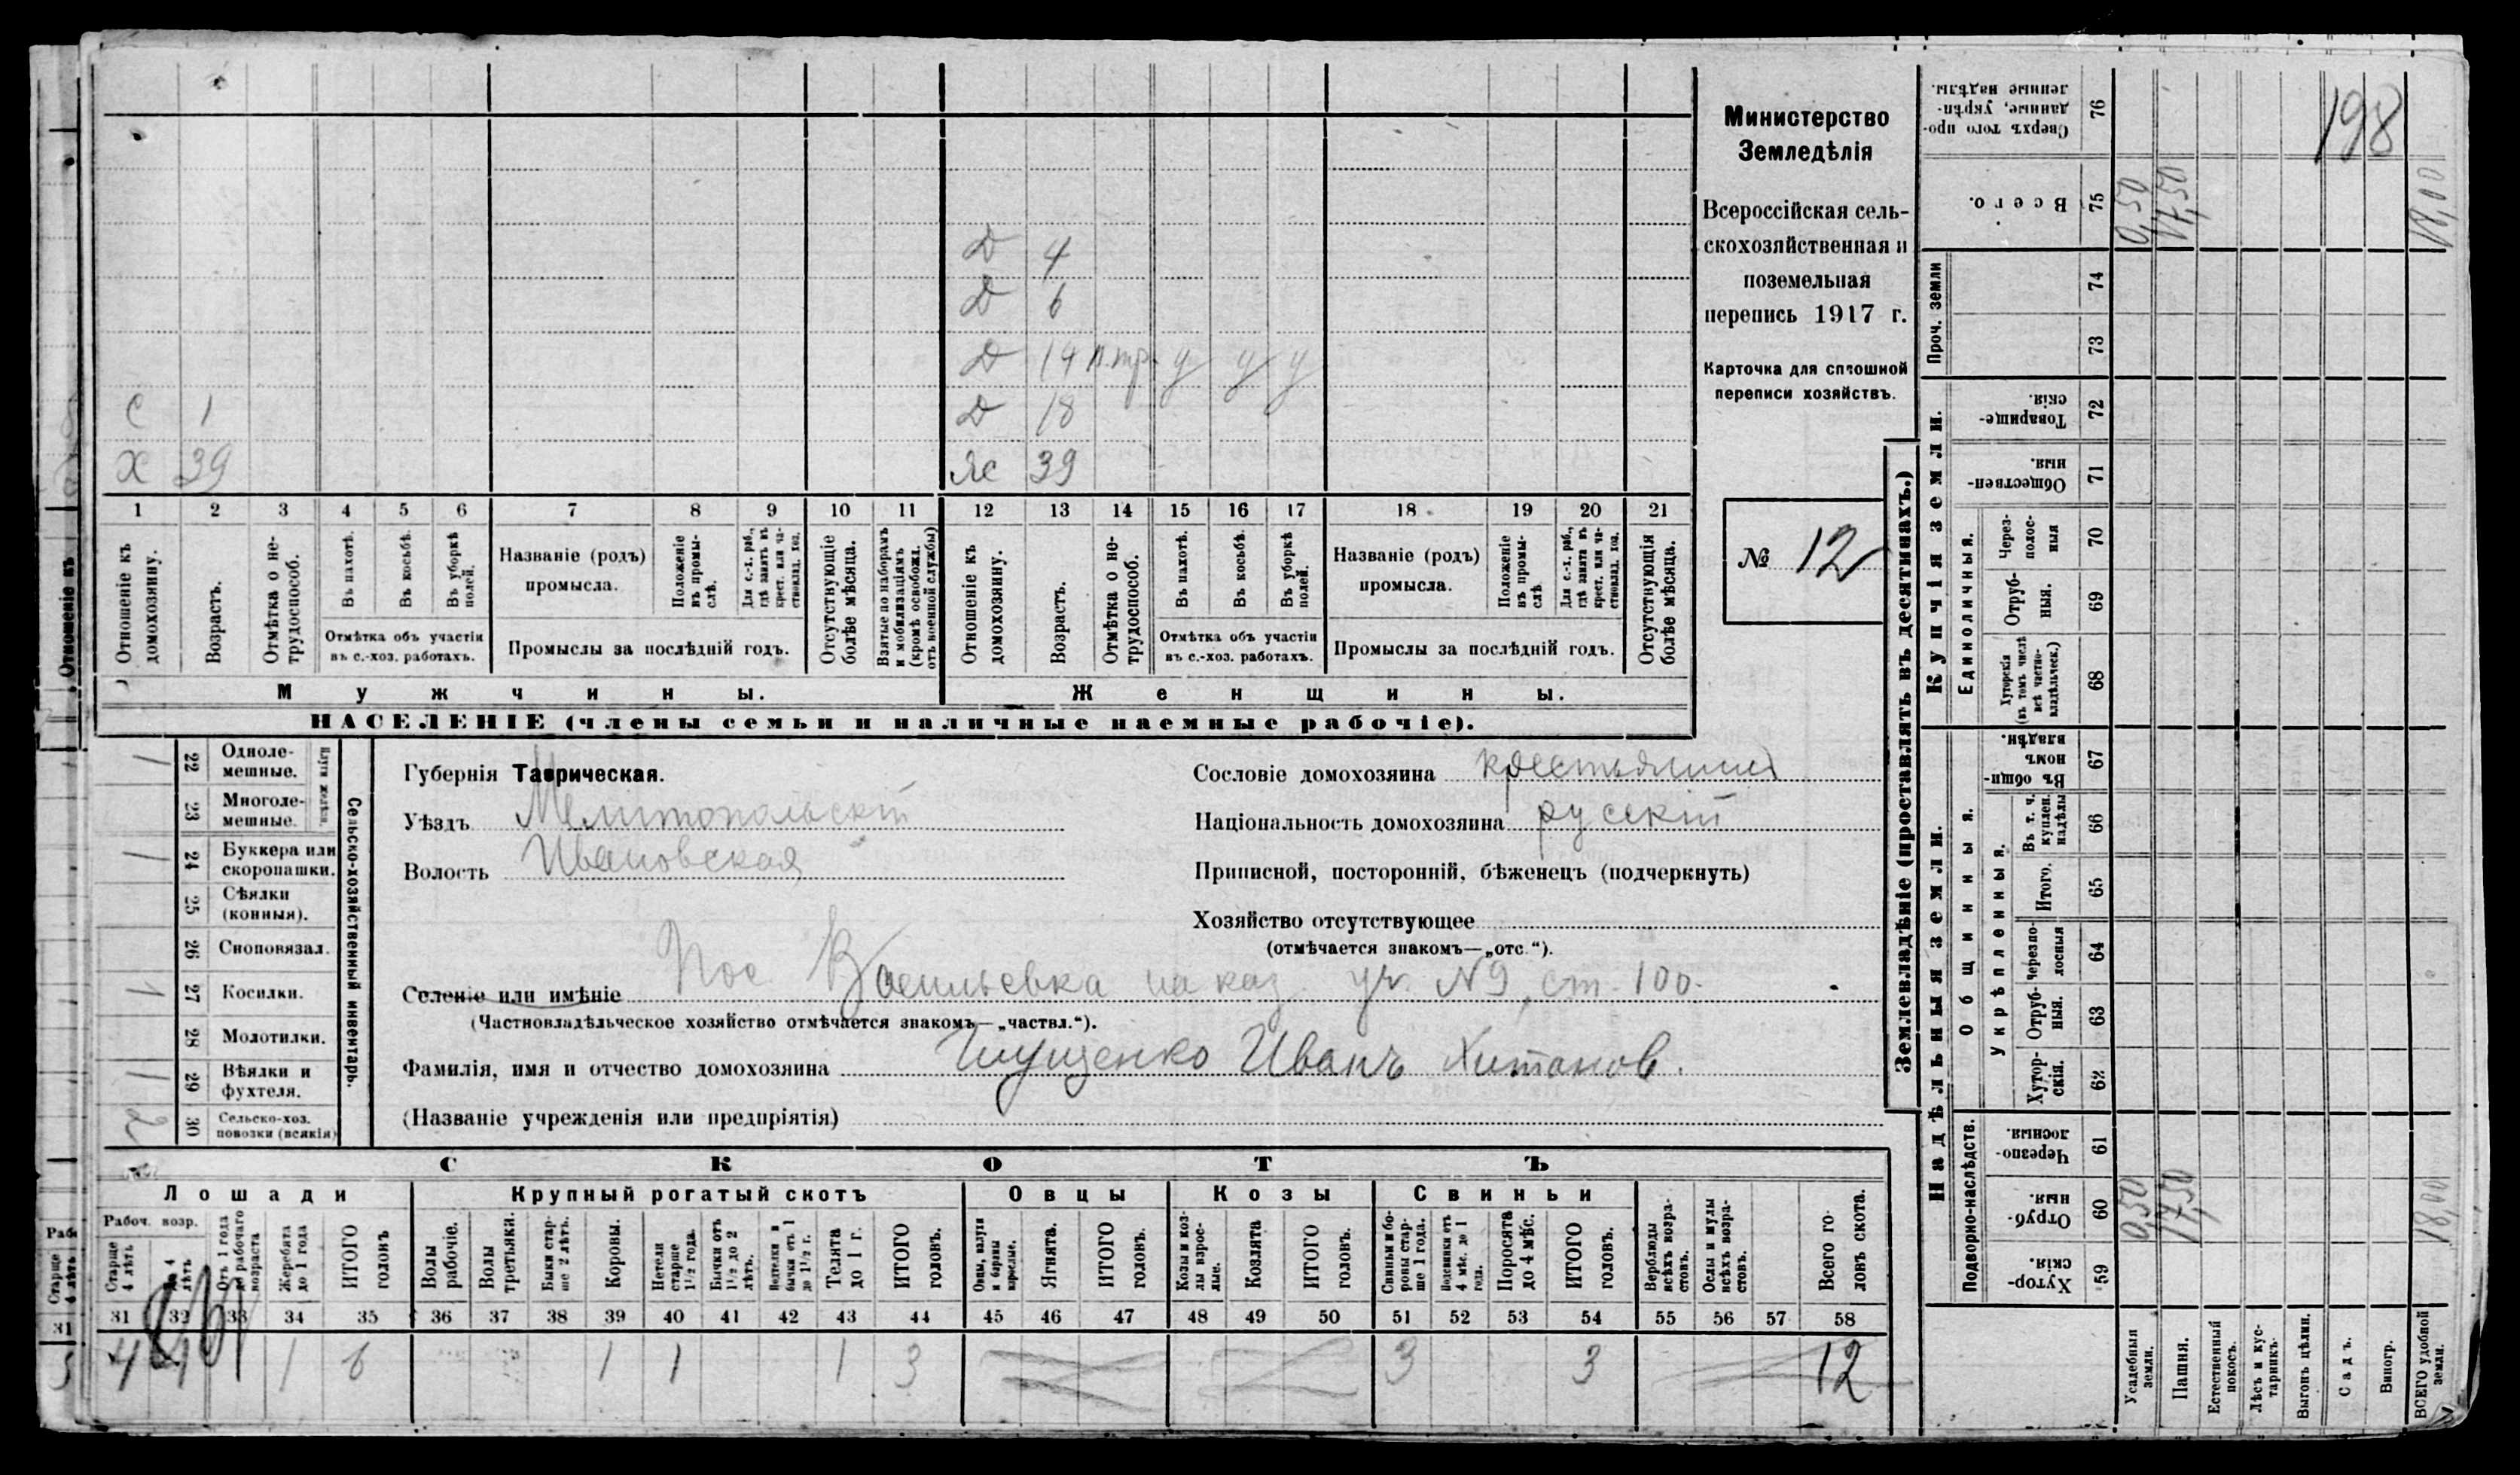 198
Министерство
Земледѣлія
Всероссійская сель-
скохозяйственная и
поземельная
перепись 1917 г.
Карточка для сплошной
переписи хозяйствъ.
№ 12
Д 4
Д 6
Д 14 п.тр. у у у
С 1 Д 18
Х 39 Ж 39
1 2 3 4 5 6 7 8 9 10 11 12 13 14 15 16 17 18 19 20 21
Отношеніе къ домохозяину.
Возрастъ.
Отмѣтка о не-трудоспособ.
Въ пахотѣ.
Въ косьбѣ.
Въ уборкѣ полей.
Отмѣтка объ участіи
въ с.-хоз. работахъ.
Названіе (родъ)
промысла.
Положеніе въ промы-слѣ.
Для с.-х. раб., гдѣ занятъ въ крест. или ча-стновлад. хоз.
Промыслы за послѣдній годъ.
Отсутствующіе болѣе мѣсяца.
Взятые по наборамъ и мобилизаціямъ (кромѣ освобожд. отъ военной службы)
Отношеніе къ домохозяину.
Возрастъ.
Отмѣтка о не-трудоспособ.
Въ пахотѣ.
Въ косьбѣ.
Въ уборкѣ полей.
Отмѣтка объ участіи
въ с.-хоз. работахъ.
Названіе (родъ)
промысла.
Положеніе въ промы-слѣ
Для с.-х. раб., гдѣ занята въ крест. или ча-стновлад. хоз.
Промыслы за послѣдній годъ.
Отсутствующія болѣе мѣсяца.
Мужчины.
Женщины.
НАСЕЛЕНІЕ (члены семьи и наличные наемные рабочіе).
Сельско-хозяйственный инвентарь.
1 22 Одноле-мешные.
23 Многоле-мешные.
1 24 Буккера или скоропашки.
25 Сѣялки (конныя).
26 Сноповязал.
1 27 Косилки.
28 Молотилки.
1 29 Вѣялки и фухтеля.
2 30 Сельско-хоз. повозки (всякія)
Губернія Таврическая.
Уѣздъ Мелитопольскій
Волость Ивановская
Сословіе домохозяина крестьянин
Національность домохозяина русскій
Приписной, посторонній, бѣженецъ (подчеркнуть)
Хозяйство отсутствующее
(отмѣчается знакомъ—„отс“).
Селеніе или имѣніе Пос. Васильевка на каз. уч. №9, ст. 100.
(Частновладѣльческое хозяйство отмѣчается знакомъ—„частвл.“).
Фамилія, имя и отчество домохозяина Иванъ
(Названіе учрежденія или предпріятія)
СКОТЪ
Лошади
Крупный рогатый скотъ
Овцы
Козы
Свиньи
Рабоч. возр.
Старше 4 лѣтъ
до 4 лѣтъ
Отъ 1 года до рабочаго возраста
Жеребята до 1 года
ИТОГО головъ
Волы рабочіе.
Волы третьяки.
Быки стар-ше 2 лѣтъ.
Коровы.
Нетели старше 1½ года.
Бычки отъ 1½ до 2 лѣтъ.
Нетелки и бычки отъ 1 до 1½ г.
Телята до 1 г.
ИТОГО головъ.
Овцы, валухи и бараны взрослые.
Ягнята.
ИТОГО головъ.
Козы и коз-лы взрос-лые.
Козлята
ИТОГО головъ.
Свиньи и бо-ровы стар-ше 1 года.
Подсвинки отъ 4 мѣс. до 1 года.
Поросята до 4 мѣс.
ИТОГО головъ.
Верблюды всѣхъ возра-стовъ.
Ослы и мулы всѣхъ возра-стовъ.
Всего го-ловъ скота.
31 32 33 34 35 36 37 38 39 40 41 42 43 44 45 46 47 48 49 50 51 52 53 54 55 56 57 58
4 1 6 1 1 1 3 3 3 12
Землевладѣніе (проставлять въ десятинахъ.)
Надѣльныя земли.
Купчія земли.
Проч. земли
Подворно-наслѣдств.
Общинныя.
Укрѣпленныя.
Единоличныя.
Сверхъ того про-данные, укрѣп-ленные надѣлы. 76
Всего. 75 0,50 17,50 18,00
74
73
Товарище-скія. 72
Обществен-ныя. 71
Через-полос-ныя 70
Отруб-ныя. 69
Хуторскія (въ томъ числѣ всѣ частно-владѣльческ.) 68
Въ общин-номъ владѣн. 67
Въ т. ч. куплен. надѣлы 66
Итого. 65
Черезпо-лосныя 64
Отруб-ныя. 63
Хутор-скія. 62
Черезпо-лосныя. 61
Отруб-ныя. 60 0,50 17,50 18,00
Хутор-скія. 59
Усадебныя земли.
Пашня.
Естественный покосъ.
Лѣсъ и кус-тарникъ.
Выгонъ цѣлин.
Садъ.
Виногр.
ВСЕГО удобной земли.
Отношеніе къ
Старше 4 лѣтъ
31